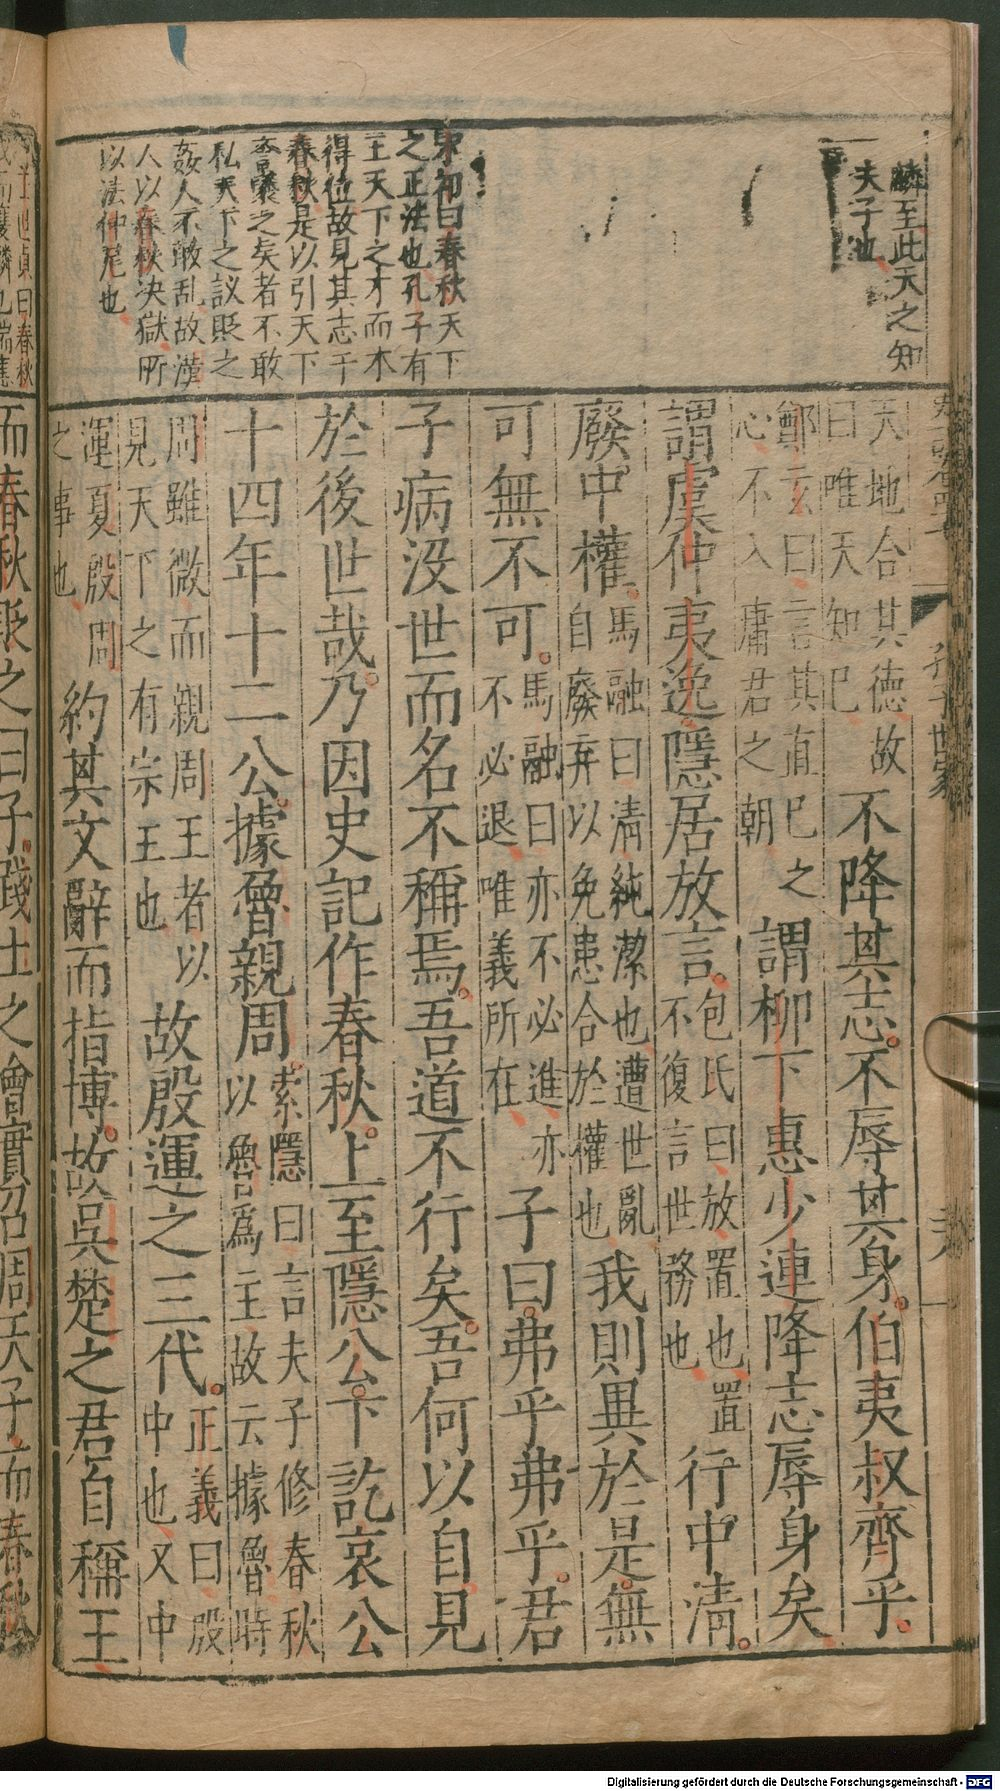 麟至此天之知
夫子也
宋祁曰春秋天下
之正法也孔子有
王天下之才而不
得位故見其志于
春秋是以引天下
私天下之議貶之
姦人不敢乱故漢
人以春秋决獄所
以法仲尼也
天地合其德故
曰唯天知巳
不降其志不辱其身伯夷叔齊乎
鄭玄曰言其直巳之
心不入庸君之朝
謂柳下惠少連降志辱身矣
謂虞仲夷逸隱居放言
包氏曰放置也置
不復言世務也
行中清
廢中權
馬融曰清純潔也遭世亂
自廢弃以免患合於權也
我則異於是無
可無不可
馬融曰亦不必進亦
不必退唯義所在
子曰弗乎弗乎君
子病没世而名不稱焉吾道不行矣吾何以自見
於後世哉乃因史記作春秋上至隱公下訖哀公
十四年十二公據魯親周
索隱曰言夫子修春秋
以魯爲主故云據魯時
周雖微而親周王者以
見天下之有宗王也
故殷運之三代
正義曰殷
中也又中
運夏殷周
之事也
約其文辭而指博故吳楚之君自稱王
而春秋貶之曰子踐土之會實召周天子而春秋
孔子世家
Digitalisierung gefördert durch die Deutsche Forschungsgemeinschaft - DFG